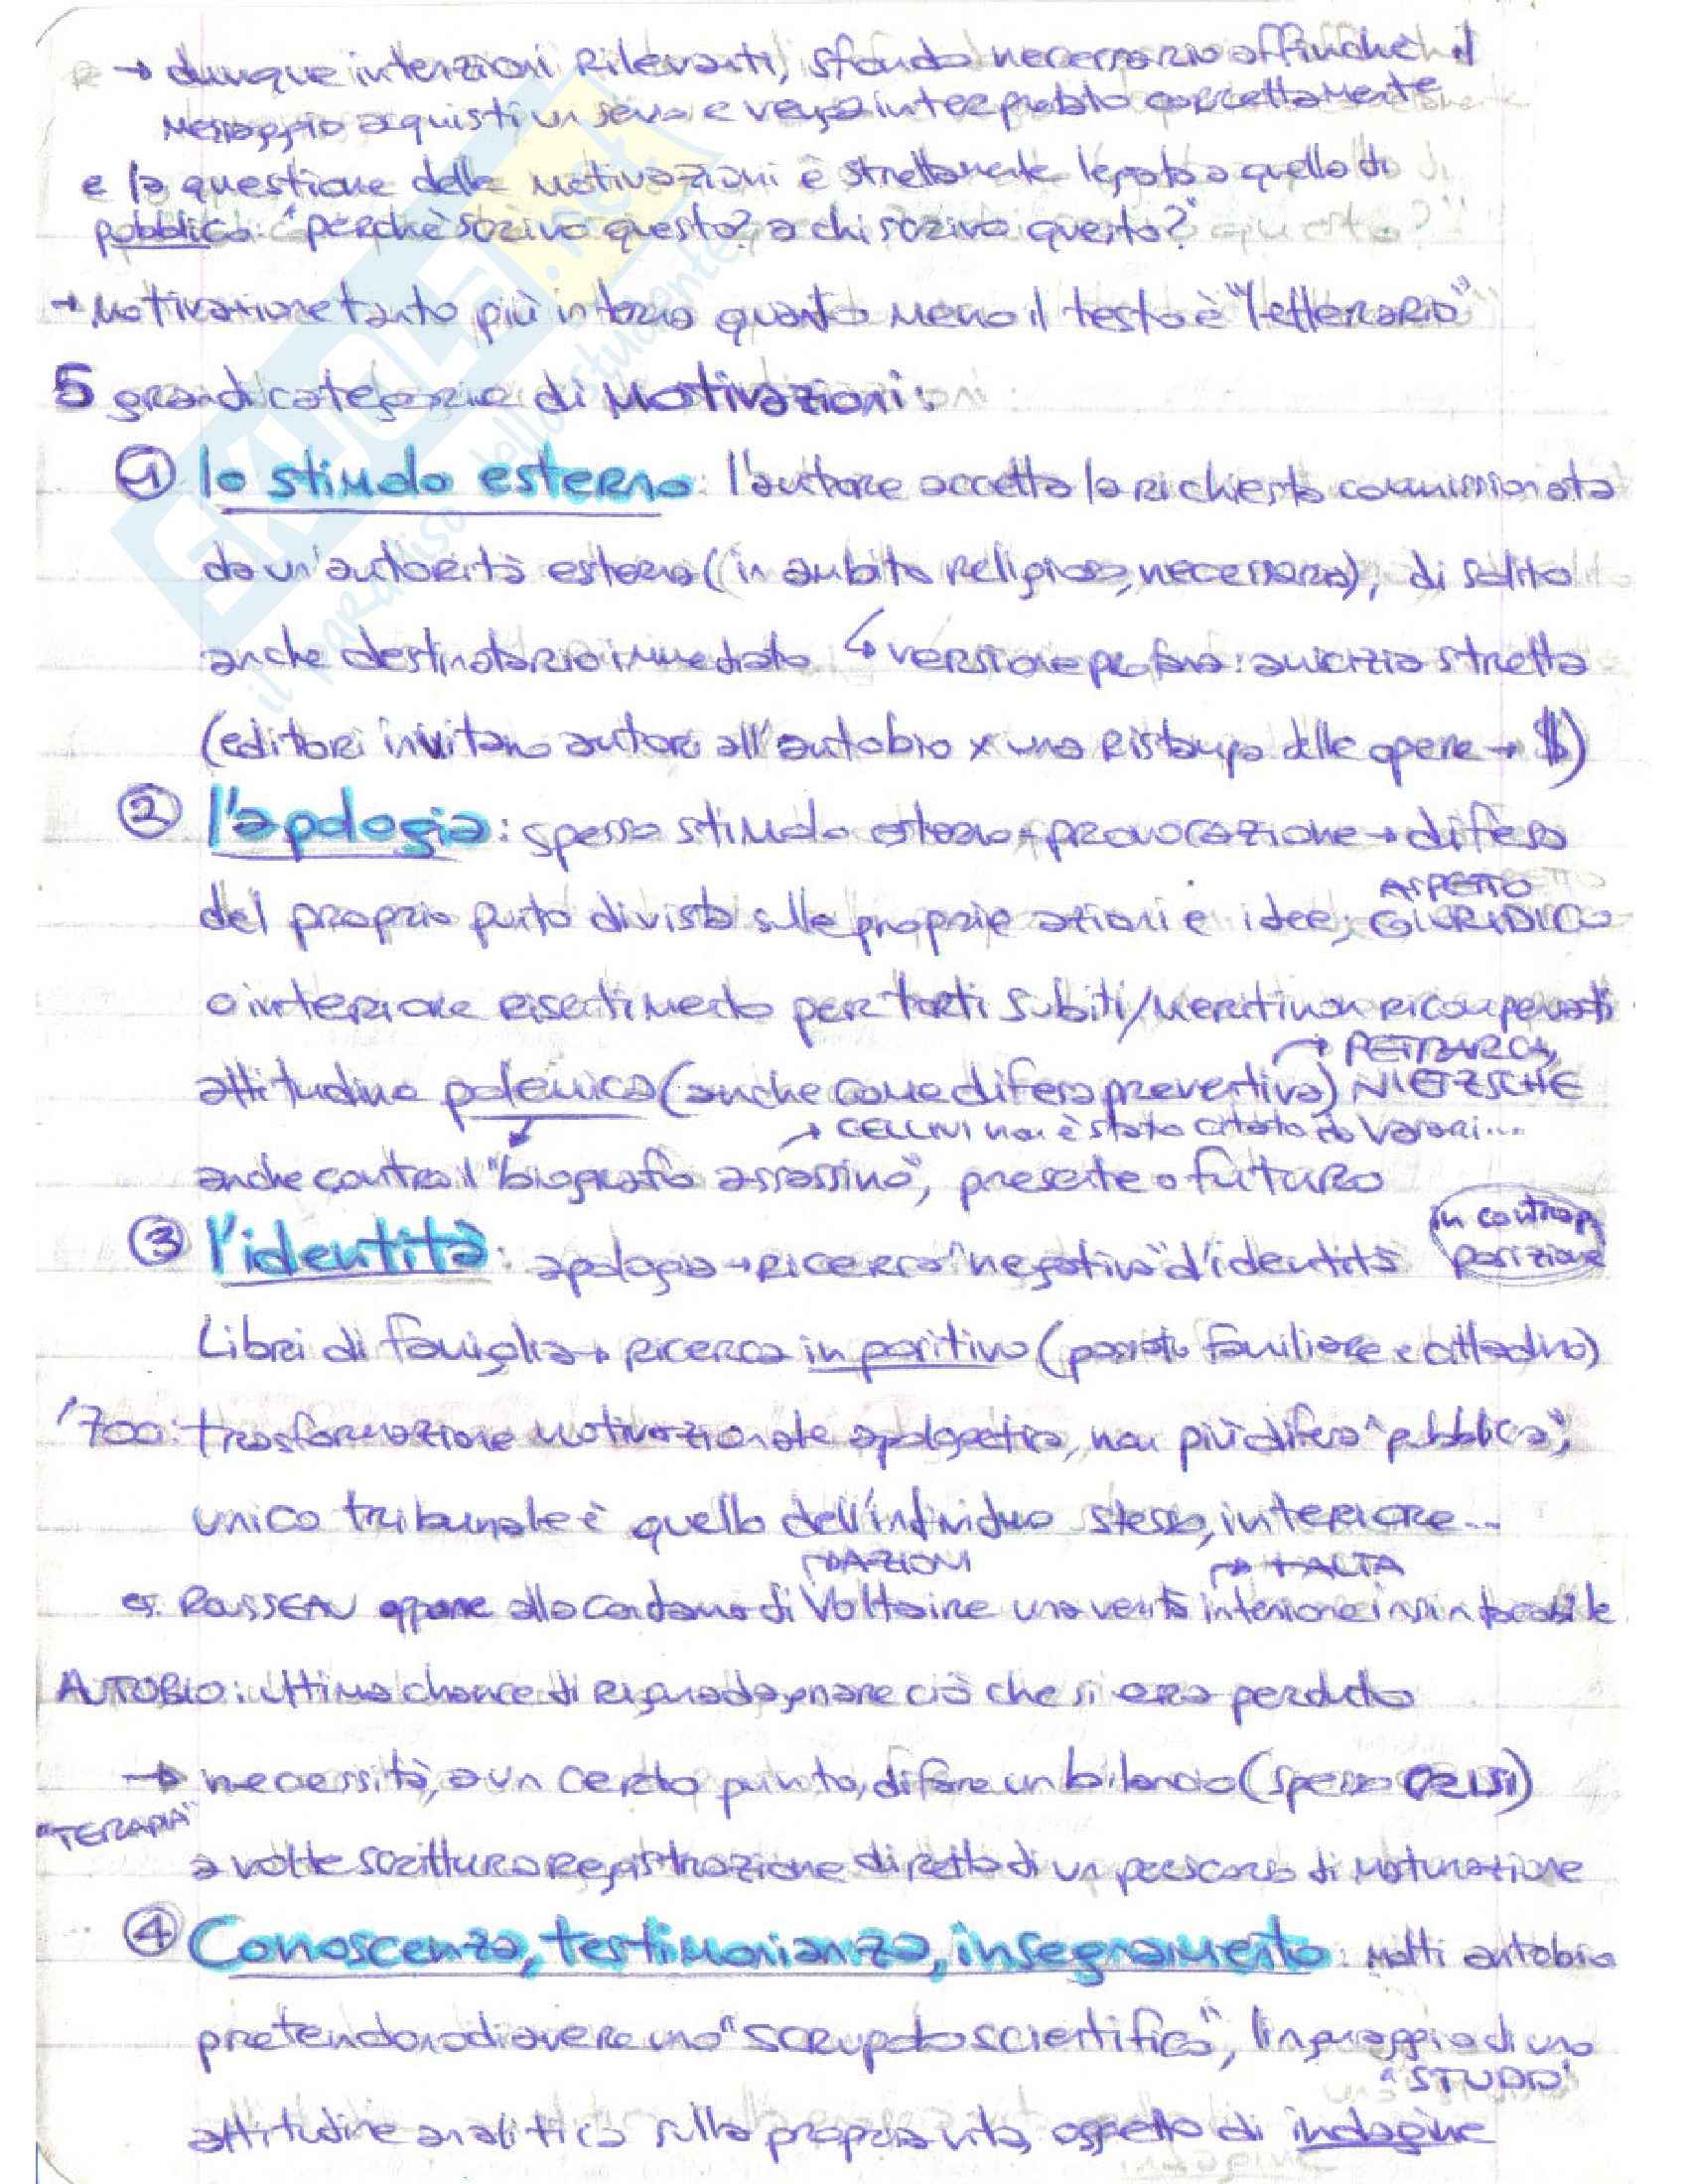 → dunque intenzioni rilevanti, sfondo necessario affinché il
messaggio acquisti un senso e venga interpretato correttamente
e la questione delle motivazioni è strettamente legata a quella di
pubblico: "perchè scrivo questo? a chi scrivo questo?"
→ motivazione tanto più interna quanto meno il testo è "letterario"
5 grandi categorie di motivazioni:
① lo stimolo esterno: l'autore accetta la richiesta commissionata
da un'autorità esterna (in ambito religioso, necessaria), di solito
anche destinatario immediato ↳ versione profana: amicizia stretta
(editori invitano autori all'autobio x una ristampa delle opere → $)
② l'apologia: spesso stimolo esterno = provocazione → difesa
del proprio punto di vista sulle proprie azioni e idee; ASPETTO GIURIDICO
o interiore risentimento per torti subiti/meriti non ricompensati
attitudine polemica (anche come difesa preventiva) → PETRARCA, NIETZSCHE
→ CELLINI non è stato citato da Vasari...
anche contro il "biografo assassino", presente o futuro
③ l'identità: apologia → ricerca "negativa" d'identità in contrapposizione
Libri di famiglia → ricerca in positivo (passato familiare e cittadino)
'700: trasformazione motivazionale apologetica, non più difesa "pubblica",
unico tribunale è quello dell'individuo stesso, interiore...
→ AZIONI → + ALTA
es. ROUSSEAU oppone alla condanna di Voltaire una verità interiore
AUTOBIO: ultima chance di riguadagnare ciò che si era perduto
→ necessità, a un certo punto, di fare un bilancio (spesso CRISI)
"TERAPIA"
a volte scrittura registrazione diretta di un percorso di maturazione
④ Conoscenza, testimonianza, insegnamento: molti autobio
pretendono di avere uno "scrupolo scientifico", linguaggio di uno
"STUDIO"
attitudine analitica sulla propria vita, aspetto di indagine
SKUOLA.net
il paradiso dello studente